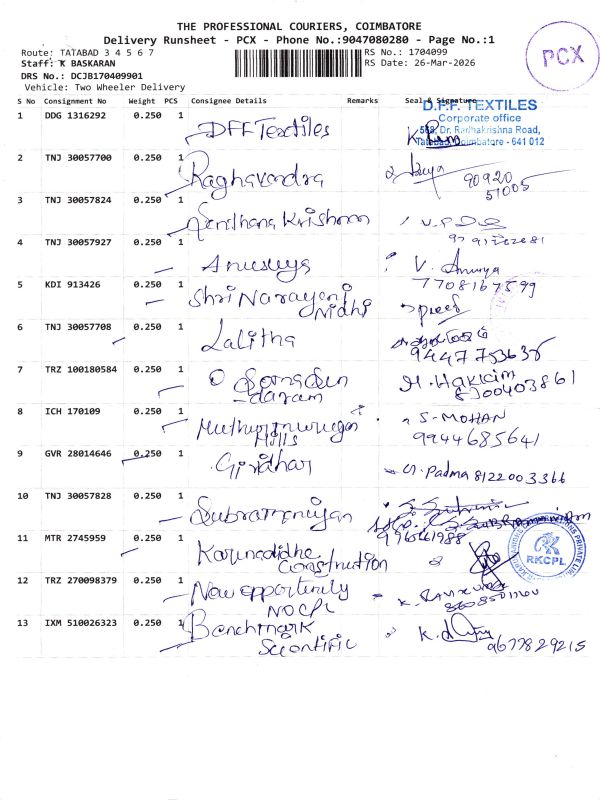 THE PROFESSIONAL COURIERS, COIMBATORE
Delivery Runsheet - PCX - Phone No.:9047080280 - Page No.:1
Route: TATABAD 3 4 5 6 7
RS No.: 1704099
PCX
Staff: K BASKARAN
RS Date: 26-Mar-2026
DRS No.: DCJB170409901
Vehicle: Two Wheeler Delivery
S No Consignment No Weight PCS Consignee Details Remarks Seal & Signature
1 DDG 1316292 0.250 1 DFF Textiles
D.F.F. TEXTILES
Corporate office
568, Dr. Radhakrishna Road,
Tatabad, Coimbatore - 641 012
2 TNJ 30057700 0.250 1 Raghavendra
90920
51005
3 TNJ 30057824 0.250 1 Senthana Krishnan
4 TNJ 30057927 0.250 1 Anusuya V. Anusya
5 KDI 913426 0.250 1 Shri Narayeni Nidhi 7708167599
6 TNJ 30057708 0.250 1 Lalitha
9447753635
7 TRZ 100180584 0.250 1 H. Hakkim
8 ICH 170109 0.250 1 Muthumurugan Mills S-MOHAN
9944685641
9 GVR 28014646 0.250 1 Giridhar Padma 8122003366
10 TNJ 30057828 0.250 1 Subramaniyan
11 MTR 2745959 0.250 1 Karunanidhe Construction
RKCPL
12 TRZ 270098379 0.250 1 New opportunity NOCPL
13 IXM 510026323 0.250 1 Benchmark Scientific
9677829215